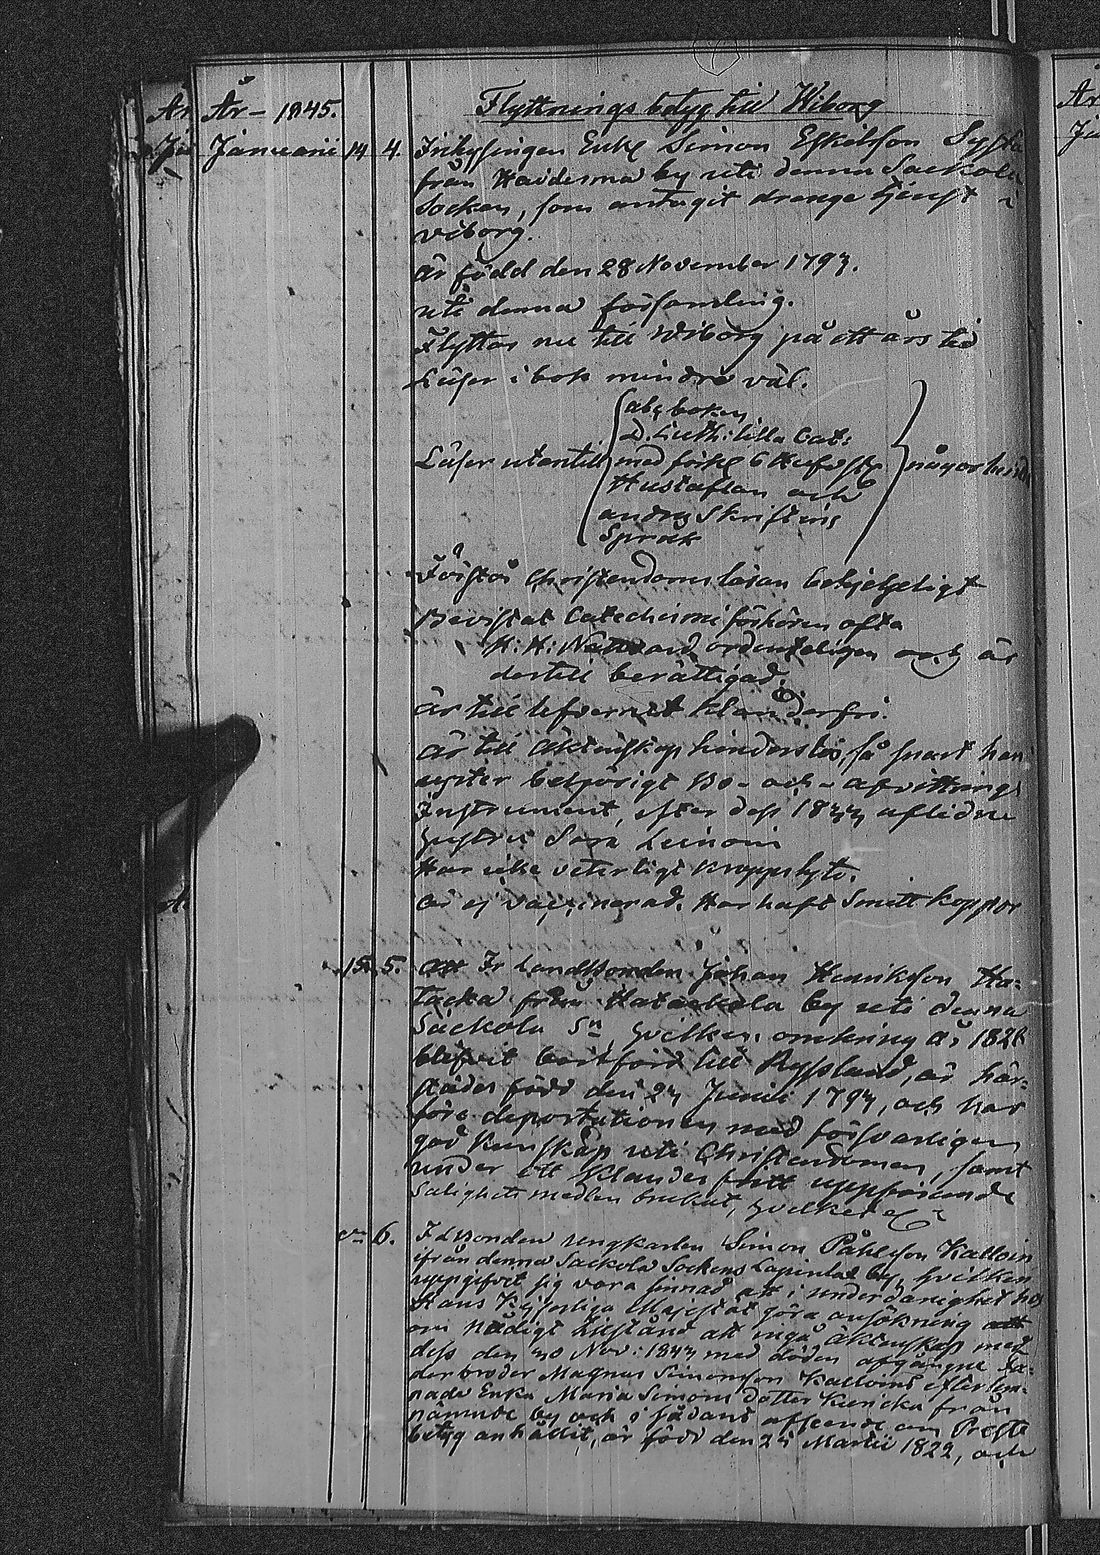 År - 1845. Flyttnings betyg till Wiborg
Januarii 14 4. Inhysingen Enkl Simon Eskelson
från by uti denna Sackola
Socken, som antagit drenge tjenst i
Wiborg.
är född den 28 November 1793.
uti denna församling.
Flyttar nu till Wiborg på ett års tid
Läser i bok mindre väl.
abc boken,
D. Luth: lilla Cat:
Läser utantill med förkl
Hustaflan och någorlunda
andra Skriftens
Språk
Förstår Christendomsläran behjelpeligt
Bevistat Catechismi förhören ofta
H: H: Nattvard ordenteligen och är
dertill berättigad.
är till lefvernet klanderfri.
är till äktenskap hinderslös, så snart han
företer behörigt Bo- och afvittrings
Instrument, efter dess aflidne
hustru Sara Leinoin
Har icke veterligt kroppslyte.
är ej vaccinerad. Har haft Smitt koppor
15. 5. att Fr Landtbonden Johan Henrikson Ha-
tacka från Hatackola by uti denna
Sackola Sn, hvilken omkring år
blifvit bortförd till Ryssland, är här-
städes född den Junii och har
före deportationen med försvarligen
god kunskap uti Christendomen, samt
under ett klanderfritt uppförande
Salighets medlen brukat, hvilket
6. ungkarlen Simon Påhlsson
ifrån denna Sackola Sockens Lapinlax by, hvilken
uppgifvit sig vara sinnad att i underdånighet hos
Hans Kejserliga Majestät göra ansökning
om nådigt tillstånd att ingå äktenskap med
dess den Nov: med döden afgångne Fa-
derbroder Magnus Simonson efterlem-
nade Enka Maria Simons dotter från
nämnde by och i sådant afseende om Preste
betyg anhållit, är född den Martii 1822, och